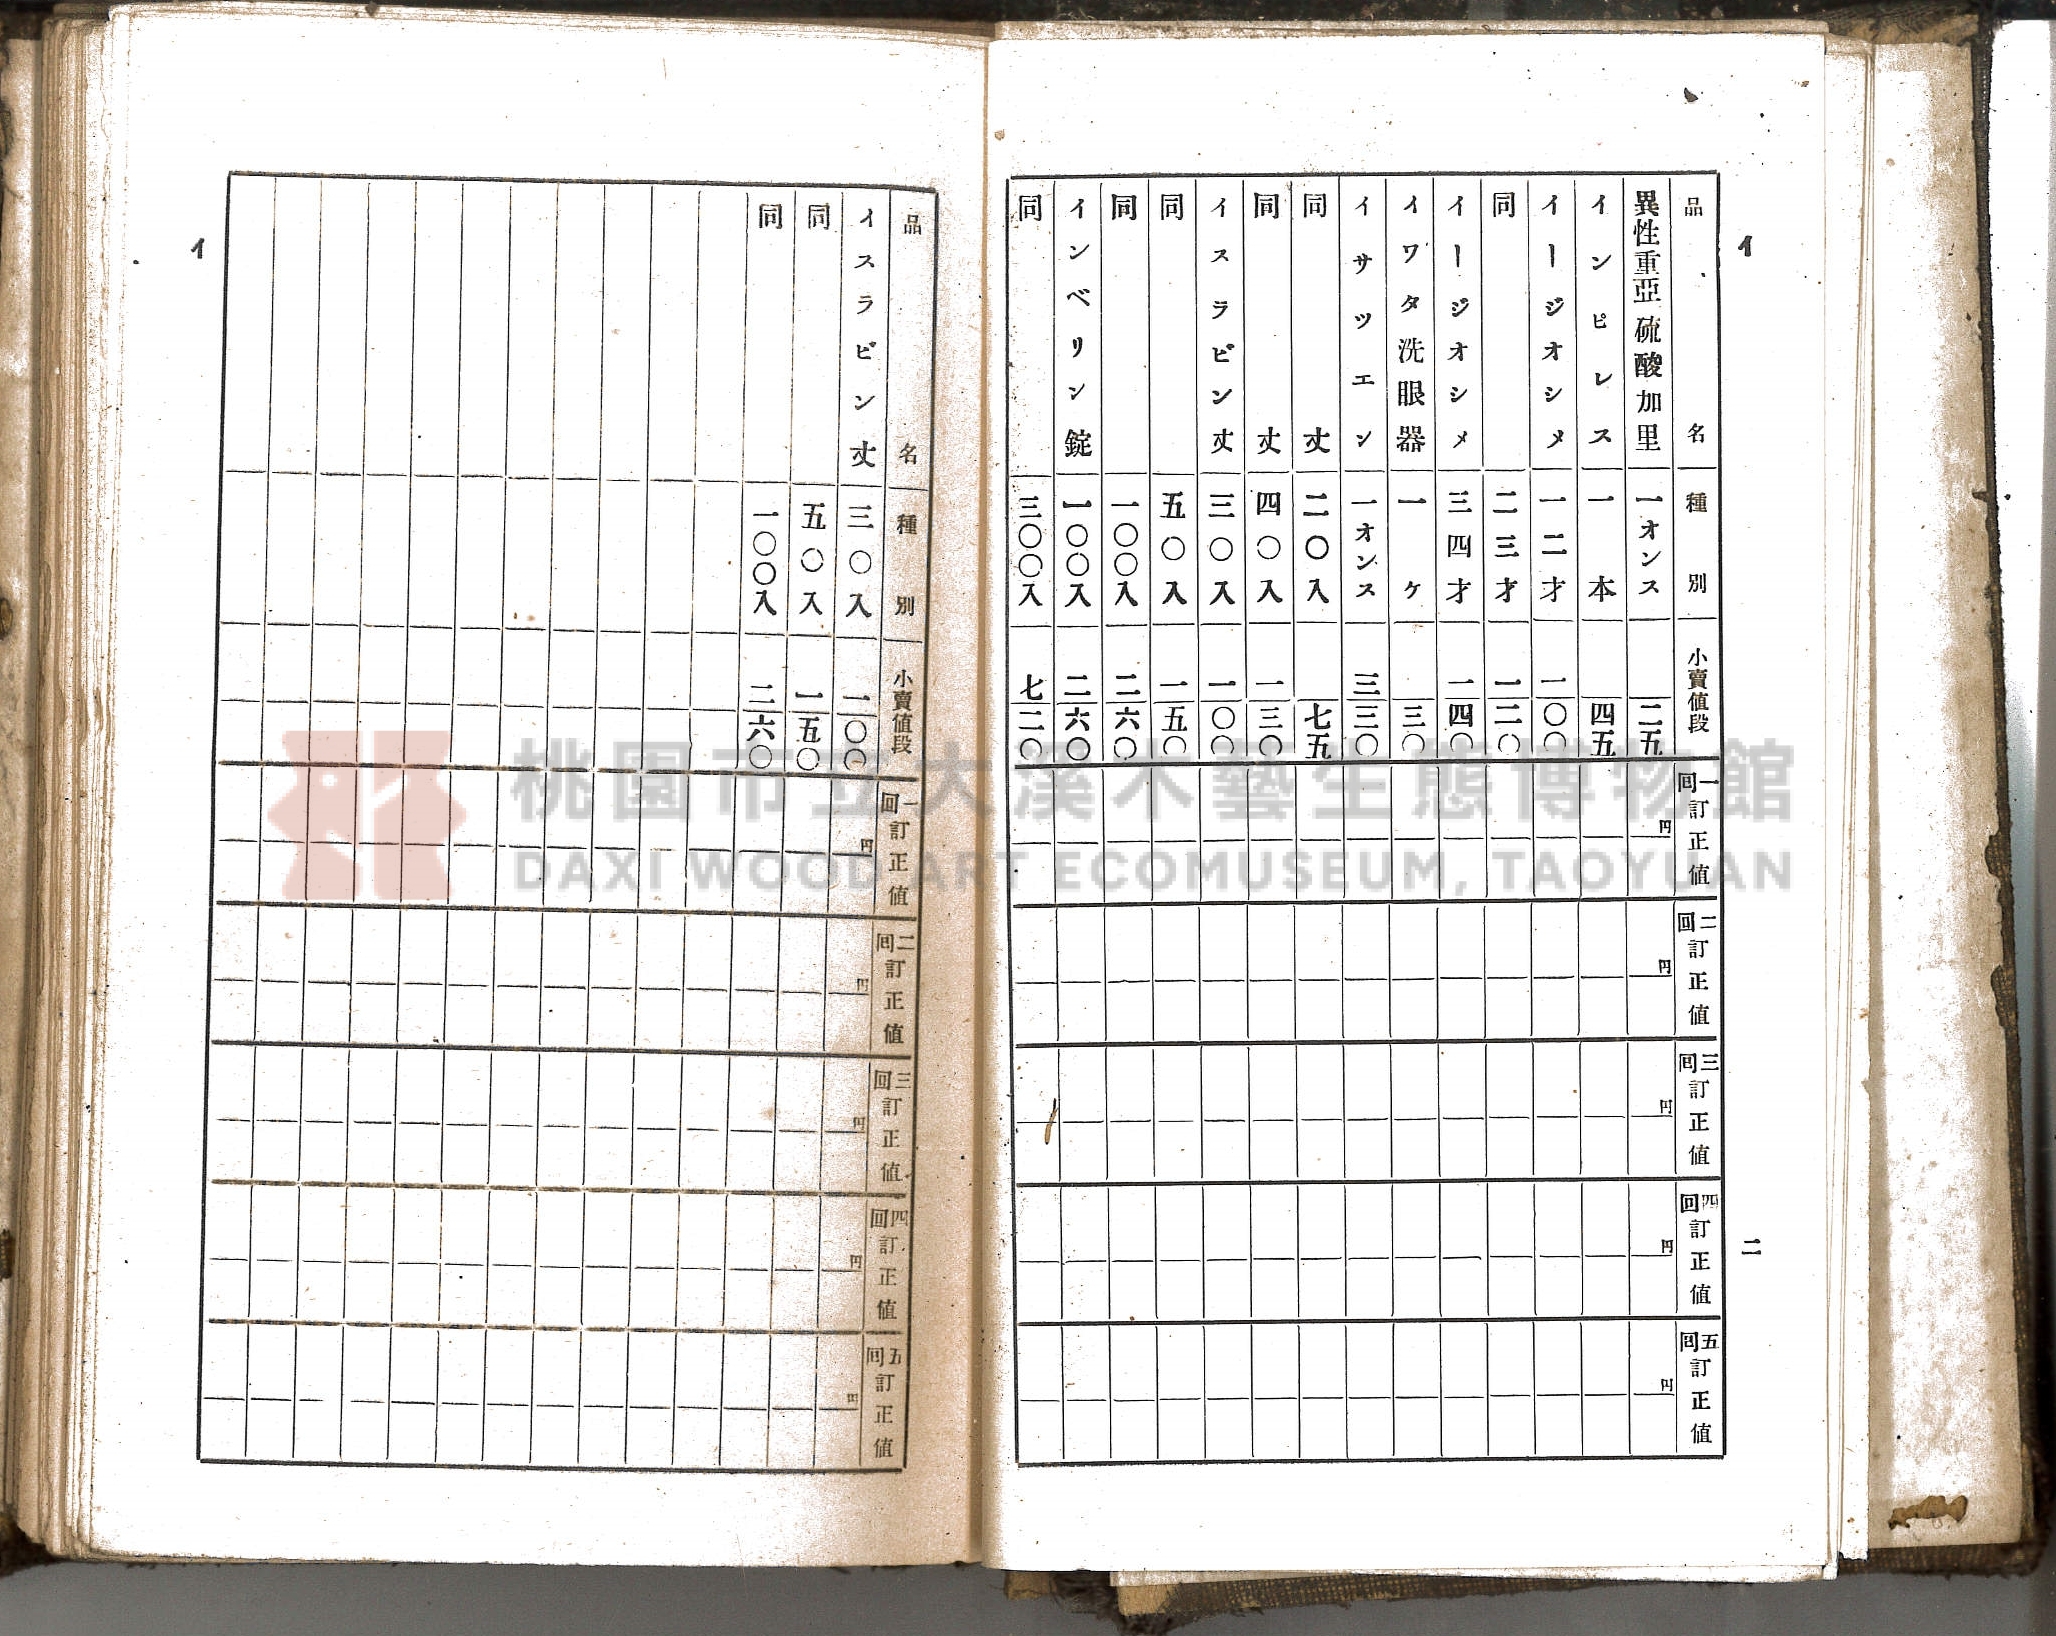 イ
二
品名 種別 小賣値段 一回訂正値 二回訂正値 三回訂正値 四回訂正値 五回訂正値
異性重亞硫酸加里 一オンス 二五 円 円 円 円 円
インピレス 一本 四五
イージオシメ 一二才 一 〇〇
同 二三才 一 二〇
イージオシメ 三四才 一 四〇
イワタ洗眼器 一ケ 三〇
イサツエン 一オンス 三 三〇
同 丈 二〇入 七五
同 丈 四〇入 一 三〇
イスラビン丈 三〇入 一 〇〇
同 五〇入 一 五〇
同 一〇〇入 二 六〇
インベリン錠 一〇〇入 二 六〇
同 三〇〇入 七 二〇
品名 種別 小賣値段 一回訂正値 二回訂正値 三回訂正値 四回訂正値 五回訂正値
イスラビン丈 三〇入 一 〇〇 円 円 円 円 円
同 五〇入 一 五〇
同 一〇〇入 二 六〇
イ
桃園市立大溪木藝生態博物館
DAXI WOOD ART ECOMUSEUM, TAOYUAN